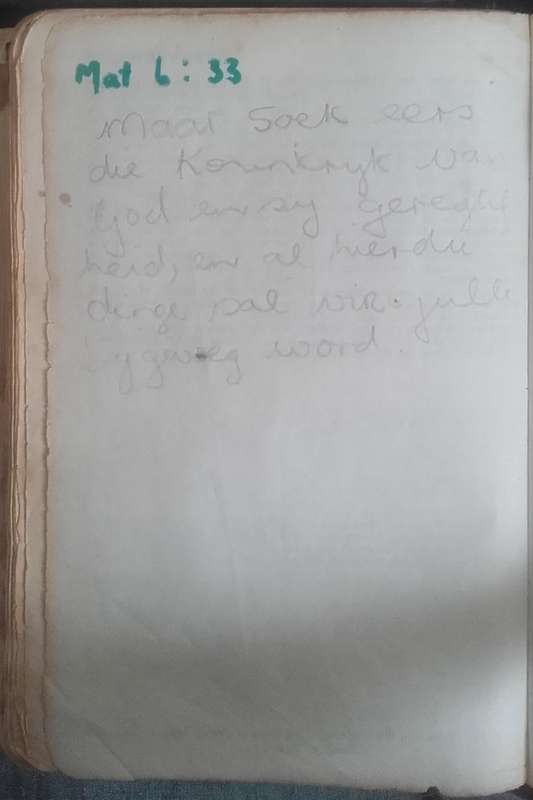 Mat 6: 33
Maar Soek eers
die Koninkryk van
God en sy geregtig
heid, en al hierdie
dinge sal vir julle
bygevoeg word.